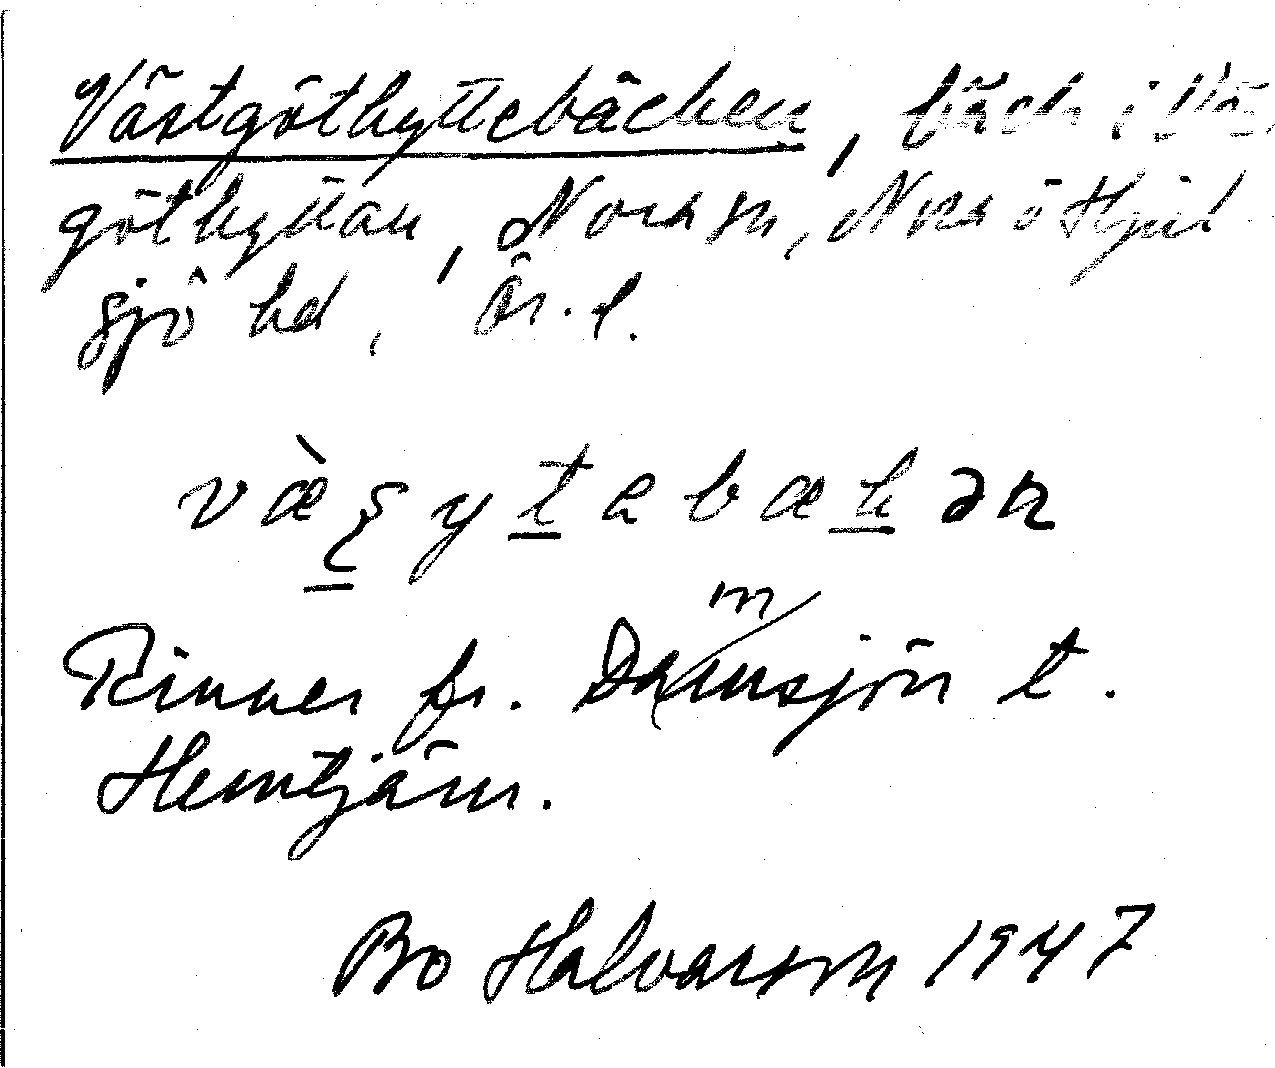 Västgöthyttebäcken, bäck i Väs
göthyttan, Nora sn, Nora o Hjul
sjö hd, Ör. l.
væ̀ʂytabækən
Rinner fr. Dammsjön t.
Hemtjärn.
Bo Halvarson 1947